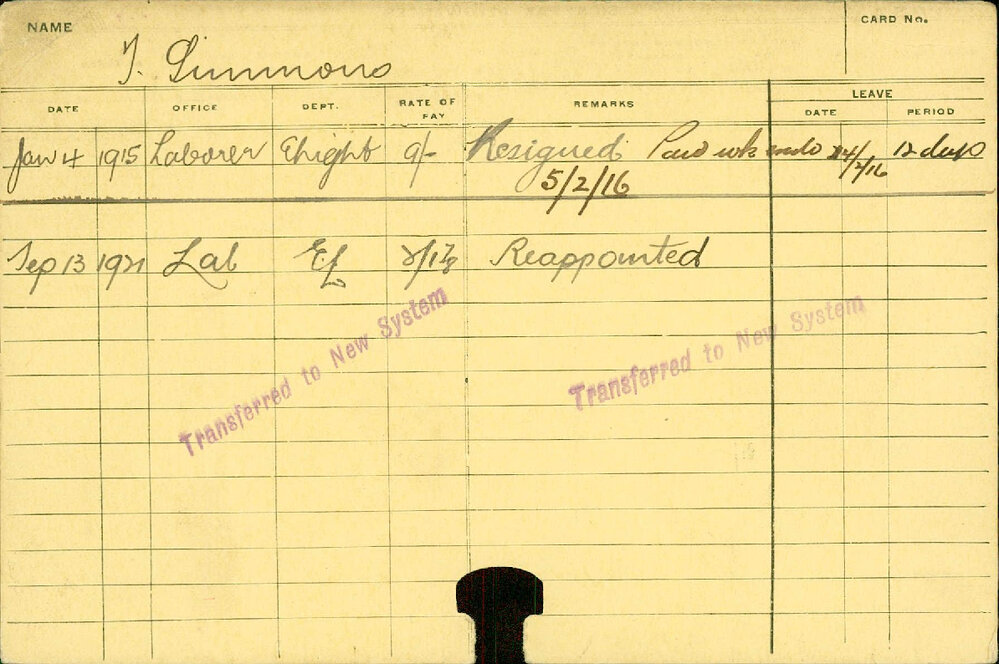 NAME
CARD No.
T. Simmons
DATE OFFICE DEPT. RATE OF PAY REMARKS LEAVE
DATE PERIOD
Jan 4 1915 Laborer Elight 9/- Resigned Paid wk ende 24/2/16 12 days
5/2/16
Sep 13 1921 Lab EL Reappointed
Transferred to New System
Transferred to New System